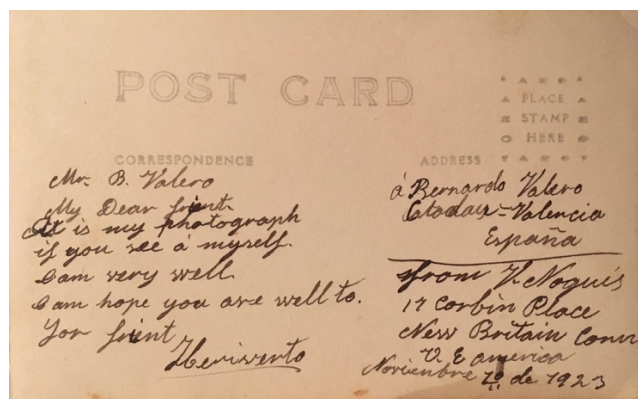 POST CARD
PLACE
STAMP
HERE
CORRESPONDENCE
ADDRESS
Mr. B. Valero
My Dear frient.
It is my photograph
if you see á myself.
I am very well.
I am hope you are well to.
Yor frient
Herisvento
á Bernardo Valero
Catadau - Valencia
España
from V. Nogués
17 Corbin Place
New Britain Conn
U. E america
Novienbre de 1923